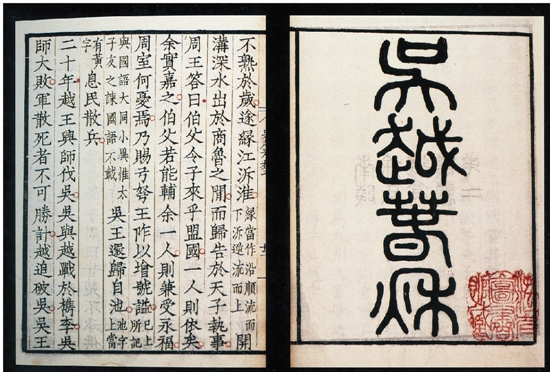 吳越春秋
不熟於歲遂緣江泝淮緣當作沿順流而下泝逆流而上開
溝深水出於商魯之閒而歸告於天子執事
周王答曰伯父令子來乎盟國一人則依矣
余實嘉之伯父若能輔余一人則兼受永福
周室何憂焉乃賜弓弩王阼以增號諡已上所記
與國語大同小異惟太子友之諫國語不載吳王還歸自池池字上當
有黃字息民散兵
二十年越王興師伐吳吳與越戰於檇李吳
師大敗軍散死者不可勝計越追破吳吳王